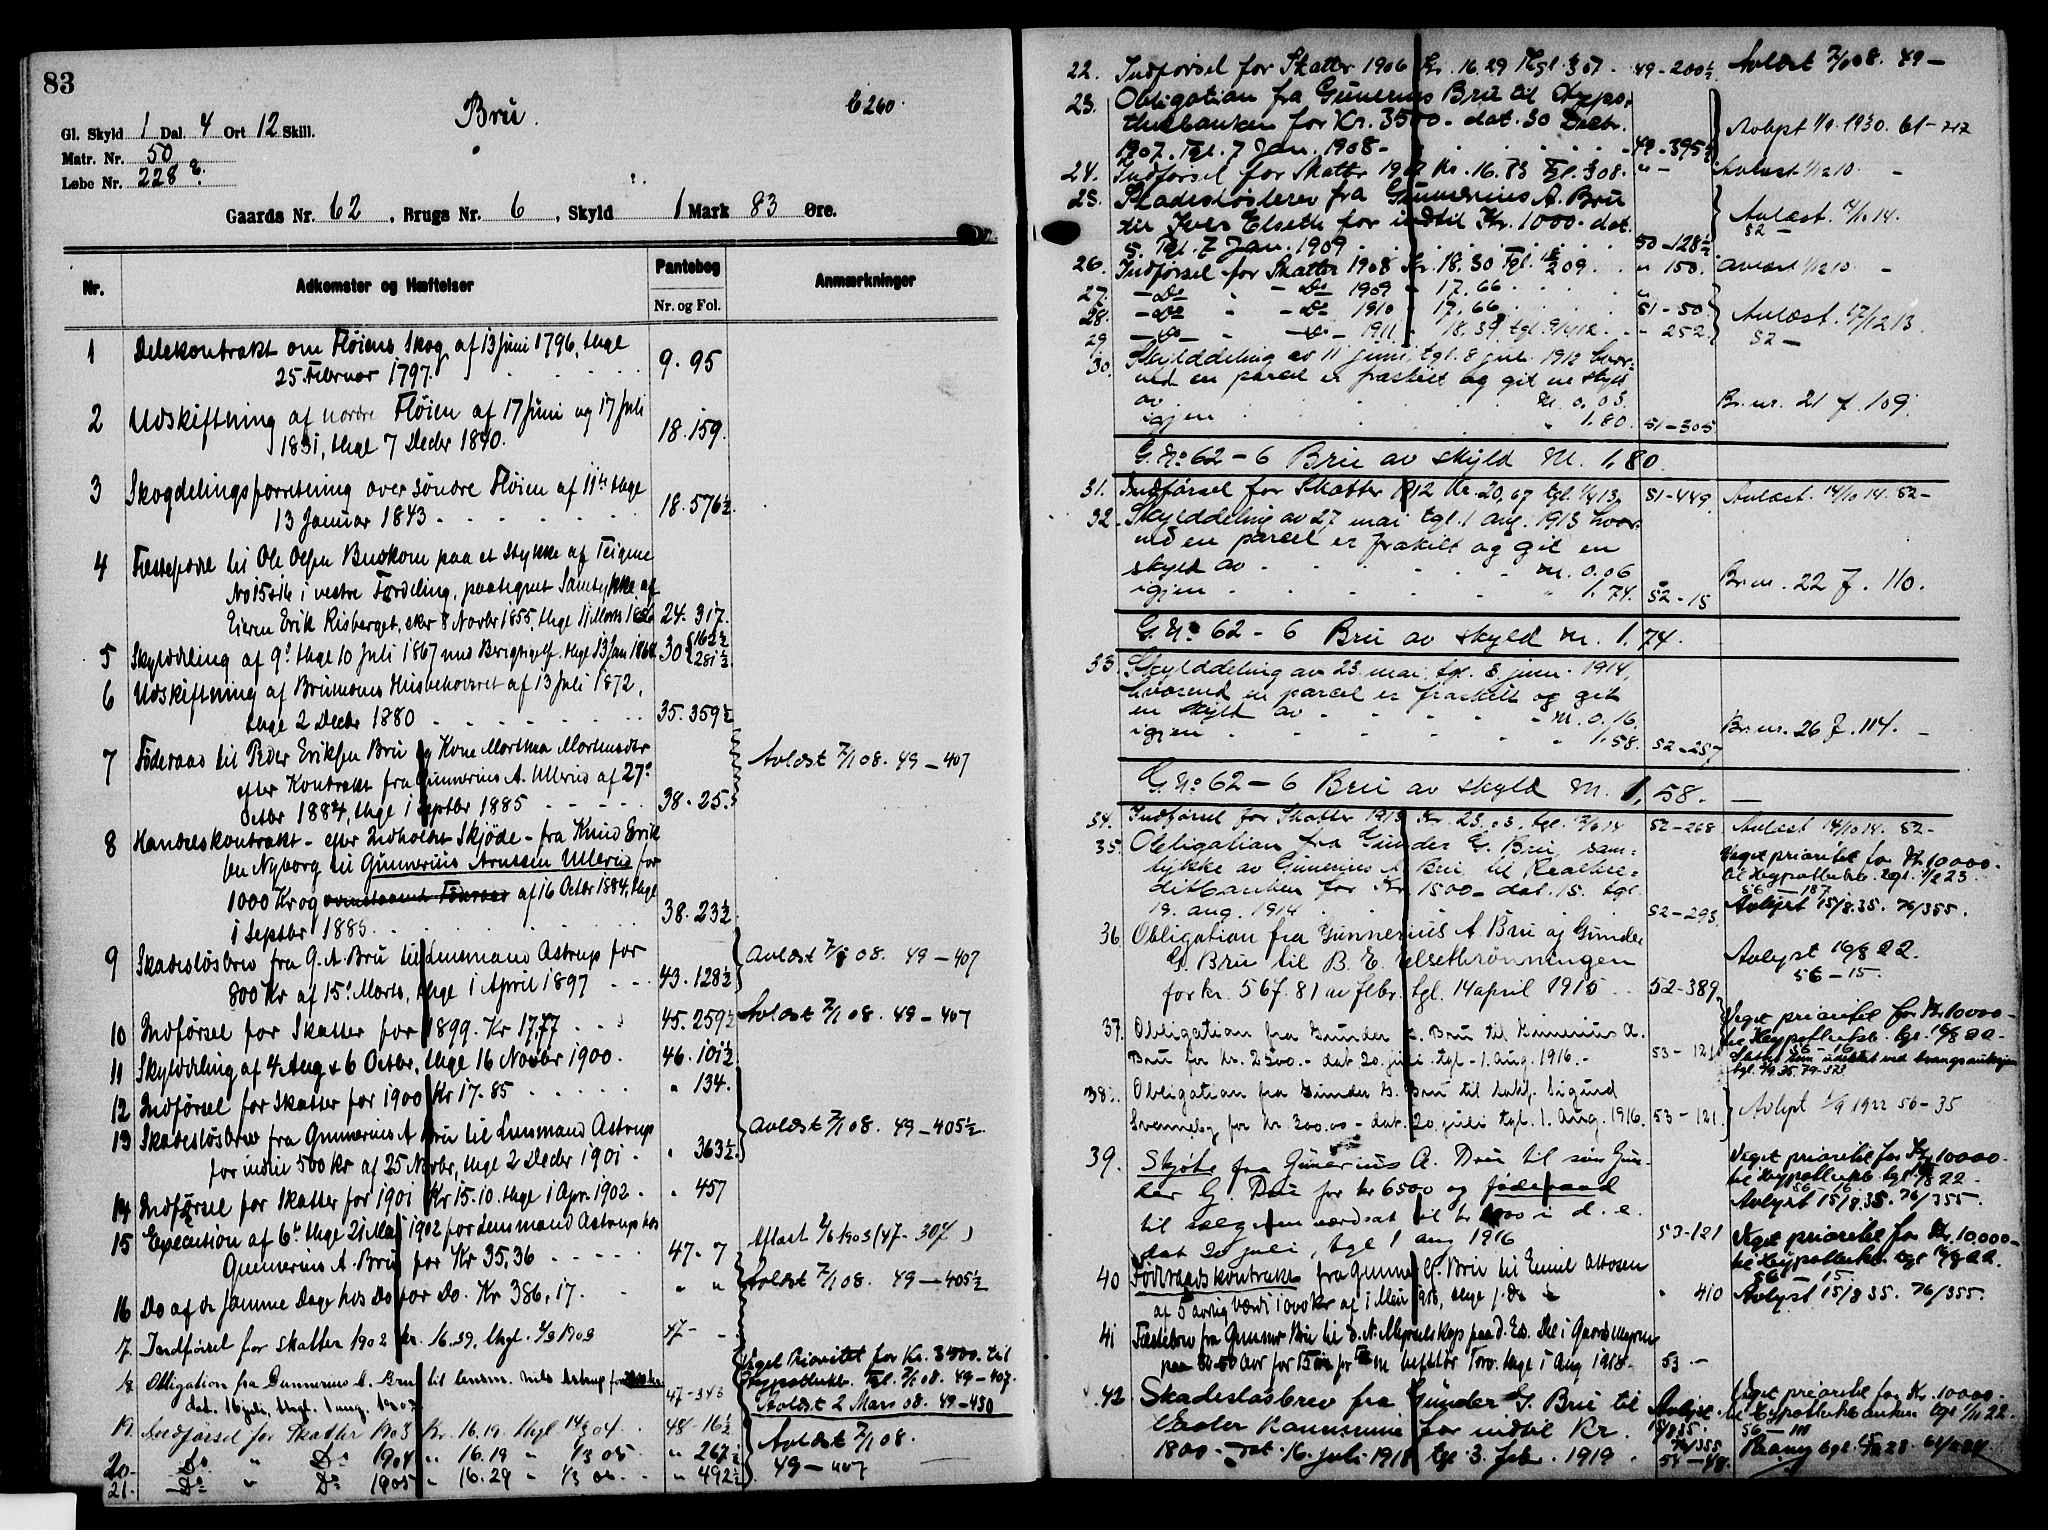 83
Bru.
E 260.
Gl. Skyld 1 Dal. 4 Ort 12 Skill.
Matr. Nr. 50
Løbe Nr. 228
Gaards Nr. 62, Brugs Nr. 6, Skyld 1 Mark 83 Øre.
Nr. Adkomster og Hæftelser Pantebog Nr. og Fol. Anmærkninger
1 Delekontrakt om Fløiens Skog af 13 Juni 1796, thgl
25 Februar 1797. 9. 95
2 Udskiftning af nordre Fløien af 17 Juni og 17 Juli
1831, thgl 7 Decbr 1840. 18. 159.
3 Skogdelingsforretning over søndre Fløien af 11te thgl
13 Januar 1843 - 18. 576½
4 Fæsteseddel til Ole Olsen Buskom paa et Stykke af Teigene
No 15&16 i vestre Fordeling, paategnet Samtykke af
Eieren Erik Risberget, sker 8 Novbr 1855, thgl 11 Marts 1856 24. 317.
5 Skylddeling af 9' thgl 10 Juli 1867 med Berigtigelse thgl 13 Jan 1868 30 {162½ 281½
6 Udskiftning af Brumoens Husbehovsret af 13 Juli 1872,
thgl 2 Decbr 1880 35. 359½
7 Føderaad til Peder Eriksen Bru og Kone Marthea Mortensdtr
efter Kontrakt fra Gunnerius A. Ullerud af 27'
Octbr 1884, thgl 1 Septbr 1885 38. 25. Avlæst 7/1 08. 49-407
8 Handelskontrakt - efter Indholdet Skjøde - fra Knud Erik
sen Nyborg til Gunnerius Arnesen Ullerud for
1000 Kr og ovenstaaende Føderaad af 16 Octbr 1884, thgl
1 Septbr 1885. 38. 23½
9 Skadesløsbrev fra G. A. Bru til Lensmand Astrup for
800 Kr af 15' Marts, thgl 1 April 1897 43. 128½ Avlæst 7/1 08. 49-407
10 Indførsel for Skatter for 1899. Kr 17,77 45. 259½ Avlæst 7/1 08. 49-407
11 Skylddeling af 4 Aug & 6 Octbr, thgl 16 Novbr 1900. 46. 101½
12 Indførsel for Skatter for 1900 Kr 17.85 " 134.
13 Skadesløsbrev fra Gunnerius A Bru til Lensmand Astrup
for indtil 500 kr af 25 Novbr, thgl 2 Decbr 1901 - " 363½ Avlæst 7/1 08. 49-405½
14 Indførsel for Skatter for 1901 Kr 15.10. thgl 1 Apr. 1902 - " 457
15 Execution af 6te thgl 21 Mai 1902 for Lensmand Astrup hos
Gunnerius A. Bru for Kr 35,36 47. 7 Aflæst 1/6 1903 (47-307)
16 Do af do samme Dage hos Do for Do. Kr 386,17. " " Avlæst 7/1 08. 49-405½
7. Indførsel for skatter 1902 kr. 16.39, thgl. 1/3 1903 47-
18. Obligation fra Gunnerius A. Bru til lensm. Nils Astrup for
dat. 16 juli, thgl. 1 aug. 1903 47-343 Veget Prioritet for Kr. 3500. til
Hypothekb. Tgl. 7/1 08. 49-407.
Avlæst 2 Mars 08. 49-480
19. Indførsel for Skatter 1903 Kr. 16.19 thgl 14/3 04. 48-16½
20- Do " Do 1904 " 16.19 " 1/3 05 " 267½ Avlæst 7/1 08.
21. Do " Do 1905 " 16.29 " 1/3 06. " 492½ 49-407
22. Indførsel for Skatter 1906 Kr. 16.29 Thgl. 307. 49-200½ Avlæst 7/1 08. 49-
23. Obligation fra Gunerius Bru til Hypo-
thekbanken for Kr. 3500- dat. 30 Decbr.
1907. Tgl. 7 Jan. 1908- 49-395½ Avlyst 1/9. 1930. 61-212
24. Indførsel for Skatter 1907 Kr. 16.83 Tgl. 308. " - Avlæst 1/12 10. -
25. Skadesløsbrev fra Gunnerius A. Bru
til Iver Elseth for indtil Kr. 1000- dat.
5. Tgl. 7 Jan. 1909. 50-128½ Avlæst. 14/10 14.
52 -
26. Indførsel for Skatter 1908 Kr. 18.30 Tgl. 209. " 150. Avlæst 1/12 10. -
27. - Do - Do 1909 " 17.66 "
28. - Do - Do 1910 17.66 51-50 Avlæst. 17/12 13.
29 - Do - Do - 1911 " 18.39 tgl. 9/4 12. - 252. 52 -
30. Skylddeling av 11 juni, tgl. 8 juli 1912 hvor-
ved en parcel er fraskilt og git en skyld
av M. 0.03.
igjen " 1.80. 51-305 Br. nr. 21 f. 109.
G. No 62-6 Bru av skyld M. 1,80.
31. Indførsel for Skatter 1912 Kr. 20,67 tgl. 1/4 13, 51-449. Avlæst. 14/10 14. 52-
32. Skylddeling av 27 mai tgl. 1 aug. 1913 hvor-
ved en parcel er fraskilt og git en
skyld av M. 0.06
igjen " 1.74. 52-15 Br. nr. 22 f. 110.
G. No 62-6 Bru av skyld M. 1,74.
33. Skylddeling av 23 mai, tgl. 8. juni 1914,
hvorved en parcel er fraskilt og git
en skyld av M. 0.16.
igjen " 1.58. 52-257 Br. nr. 26 f. 114. -
G. No 62-6 Bru av skyld M. 1,58.
34. Indførsel for Skatter 1913 Kr. 23.03. tgl. 14 52-268 Avlæst 14/10 14. 52-
35. Obligation fra Gunder G. Bru sam-
tykke av Gunerius A Bru til Realkre-
ditbanken for Kr. 1500- dat. 15. tgl.
19. aug. 1914 52-293 Veget prioritet for Kr 10000.-
til Hypothekb. tgl. 1/2 23.
56-187
Avlyst 15/8.35. 76/355.
36. Obligation fra Gunnerius A. Bru og Gunder
G. Bru til B. E. Elsethrønningen
for kr. 567.81 av febr. tgl. 14 april 1915 52-389 Avlyst 16/8 22.
56-15.
37. Obligation fra Gunder G. Bru til Gunerius A.
Bru for kr. 2500.- dat. 20. juli tgl. 1. aug. 1916.- 53-121 Veget prioritet for Kr 10000-
til Hypothekb. tgl. 16/8 22-
56-16
som utslettet ved tvangsauksjon
38. Obligation fra Gunder G. Bru til Sigurd
Svenneby for kr. 300.00 - dat. 20 juli tgl. 1. aug. 1916. 53-121. Avlyst 5/9 1922 56-35
39. Skjøte fra Gunerius A. Bru til søn Gun-
der G. Bru for kr 6500 og føderaad
til sælgeren værdsat til kr. 1000 i d. e.
dat 20 juli, tgl 1 aug 1916 53-121 Veget prioritet for Kr 10000-
til Hypothekb. tgl. 16/8 22-
56-16
Avlyst 15/8 35. 76/355.
40 Føderaadskontrakt fra Gunner G. Bru til Emil Ottosen
af 5 aarlig Værdi 1000 Kr af 1 Mai 1918, thgl s. D. " 410 Veget prioritet for Kr. 10.000-
til Hypothekb. tgl 16/8 22.
56-15.
Avlyst 15/8 35. 76/355.
41 Fæstebrev fra Gunner Bru til D. N. Myrselskap paa d. Ed. Del i Gaards Myren
paa 50 Aar for 15 øre pr m beftør Torv. thgl 1 Aug 1918- 53 -
42 Skadesløsbrev fra Gunder G. Bru til
Vaaler Kommune for indtil Kr.
1800- dat. 16. juli 1918 tgl. 3. febr. 1919. 54-48. Avlyst 15/8 35. 76/355 Veget prioritet for Kr. 10000-
til Hypothekbanken tgl 1/11 22.
56-111